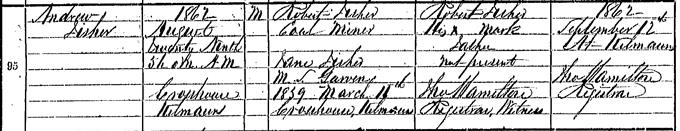 95
Andrew
Fisher
1862
August
twenty Ninth
5h 0m A.M.
Crosshouse
Kilmaurs
M
Robert Fisher
Coal Miner
Jane Fisher
M. S. Garven
1859 March 11th
Crosshouse, Kilmaurs
Robert Fisher
His x Mark
Father
not present
Jno Hamilton
Registrar, Witness
1862
September 12th
At Kilmaurs
Jno Hamilton
Registrar